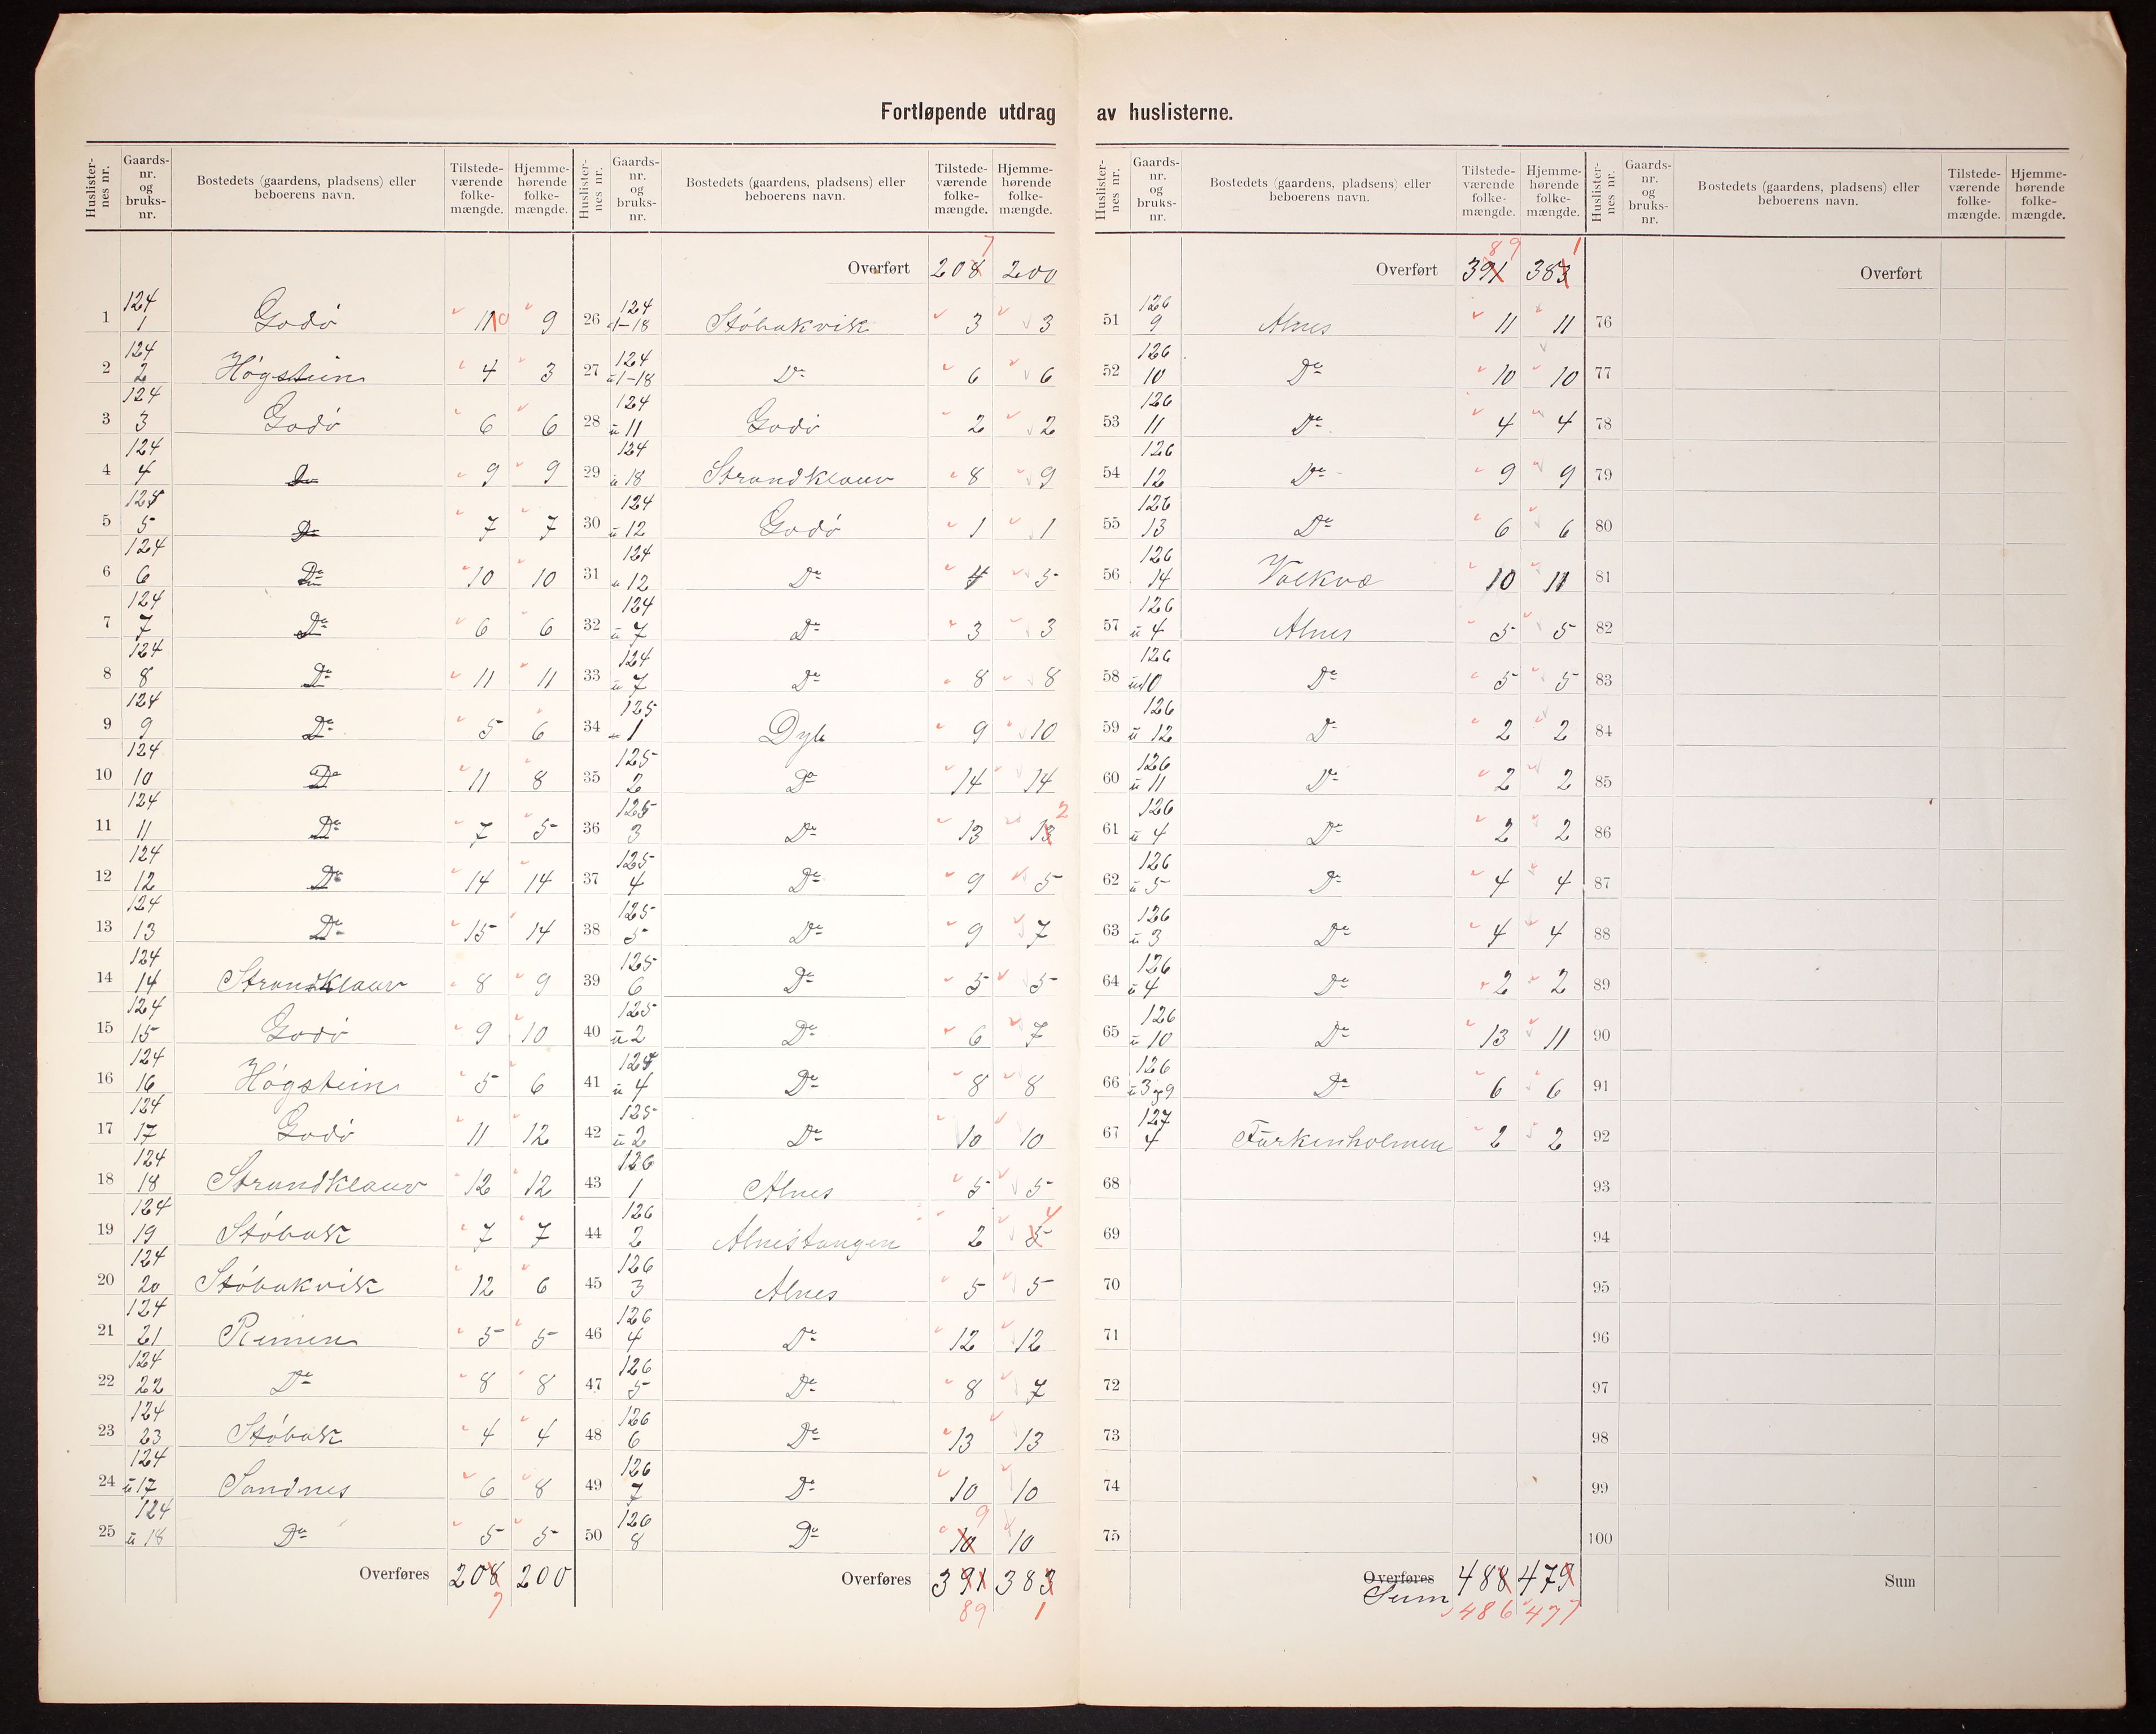 Fortløpende utdrag av huslisterne.
Huslisternes nr. Gaards-nr. og bruks-nr. Bostedets (gaardens, pladsens) eller beboerens navn. Tilstede-værende folke-mængde. Hjemme-hørende folke-mængde.
1 124 1 Godø 11 0 9
2 124 2 Høgstein 4 3
3 124 3 Godø 6 6
4 124 4 Do 9 9
5 124 5 Do 7 7
6 124 6 Do 10 10
7 124 7 Do 6 6
8 124 8 Do 11 11
9 124 9 Do 5 6
10 124 10 Do 11 8
11 124 11 Do 7 5
12 124 12 Do 14 14
13 124 13 Do 15 14
14 124 14 Strandklauv 8 9
15 124 15 Godø 9 10
16 124 16 Høgstein 5 6
17 124 17 Godø 11 12
18 124 18 Strandklauv 12 12
19 124 19 Støbak 7 7
20 124 20 Støbakvik 12 6
21 124 21 Rimen 5 5
22 124 22 Do 8 8
23 124 23 Støbak 4 4
24 124 u 17 Sandnes 6 8
25 124 u 18 Do 5 5
Overføres 208 200
7
Huslisternes nr. Gaards-nr. og bruks-nr. Bostedets (gaardens, pladsens) eller beboerens navn. Tilstede-værende folke-mængde. Hjemme-hørende folke-mængde.
7
Overført 208 200
26 124 u 1-18 Støbakvik 3 3
27 124 u 1-18 Do 6 6
28 124 u 11 Godø 2 2
29 124 u 18 Strandklauv 8 9
30 124 u 12 Godø 1 1
31 124 u 12 Do 4 5
32 124 u 7 Do 3 3
33 124 u 7 Do 8 8
34 125 1 Dyb 9 10
35 125 2 Do 14 14
36 125 3 Do 13 13 2
37 125 4 Do 9 5
38 125 5 Do 9 7
39 125 6 Do 5 5
40 125 u 2 Do 6 7
41 125 u 4 Do 8 8
42 125 u 2 Do 10 10
43 126 1 Alnes 5 5
44 126 2 Alnestangen 2 5 4
45 126 3 Alnes 5 5
46 126 4 Do 12 12
47 126 5 Do 8 7
48 126 6 Do 13 13
49 126 7 Do 10 10
50 126 8 Do 10 9 10
Overføres 391 383
89 1
Huslisternes nr. Gaards-nr. og bruks-nr. Bostedets (gaardens, pladsens) eller beboerens navn. Tilstede-værende folke-mængde. Hjemme-hørende folke-mængde.
89 1
Overført 391 383
51 126 9 Alnes 11 11
52 126 10 Do 10 10
53 126 11 Do 4 4
54 126 12 Do 9 9
55 126 13 Do 6 6
56 126 14 Valkvæ 10 11
57 126 u 4 Alnes 5 5
58 126 u 10 Do 5 5
59 126 u 12 Do 2 2
60 126 u 11 Do 2 2
61 126 u 4 Do 2 2
62 126 u 5 Do 4 4
63 126 u 3 Do 4 4
64 126 u 4 Do 2 2
65 126 u 10 Do 13 11
66 126 u 3 og 9 Do 6 6
67 127 4 Furkenholmen 2 2
68
69
70
71
72
73
74
75
Overføres 488 479
Sum 486 477
Huslisternes nr. Gaards-nr. og bruks-nr. Bostedets (gaardens, pladsens) eller beboerens navn. Tilstede-værende folke-mængde. Hjemme-hørende folke-mængde.
Overført
76
77
78
79
80
81
82
83
84
85
86
87
88
89
90
91
92
93
94
95
96
97
98
99
100
Sum